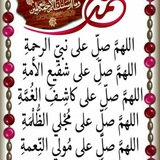 اللهمَّ صلِّ على نبيِّ الرحمةِ
اللهمَّ صلِّ على شفيعِ الأمةِ
اللهمَّ صلِّ على كاشِفِ الغُمَّةِ
اللهمَّ صلِّ على مُجْلي الظُّلمَةِ
اللهمَّ صلِّ على مُولي النِّعمةِ